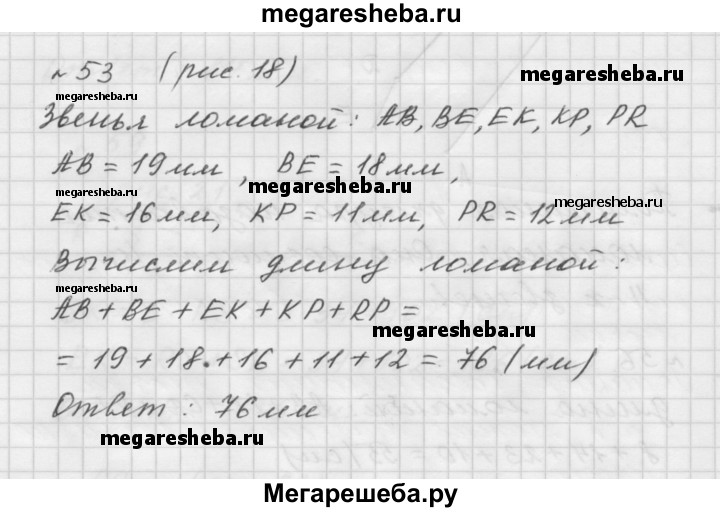 megaresheba.ru
№ 53 (рис. 18)
megaresheba.ru
megaresheba.ru
Звенья ломаной: AB, BE, EK, KP, PR
AB = 19 мм, BE = 18 мм,
megaresheba.ru
megaresheba.ru
EK = 16 мм, KP = 11 мм, PR = 12 мм
Вычислим длину ломаной:
megaresheba.ru
AB + BE + EK + KP + RP =
megaresheba.ru
= 19 + 18 + 16 + 11 + 12 = 76 (мм)
Ответ: 76 мм
megaresheba.ru
Мегарешеба.ру